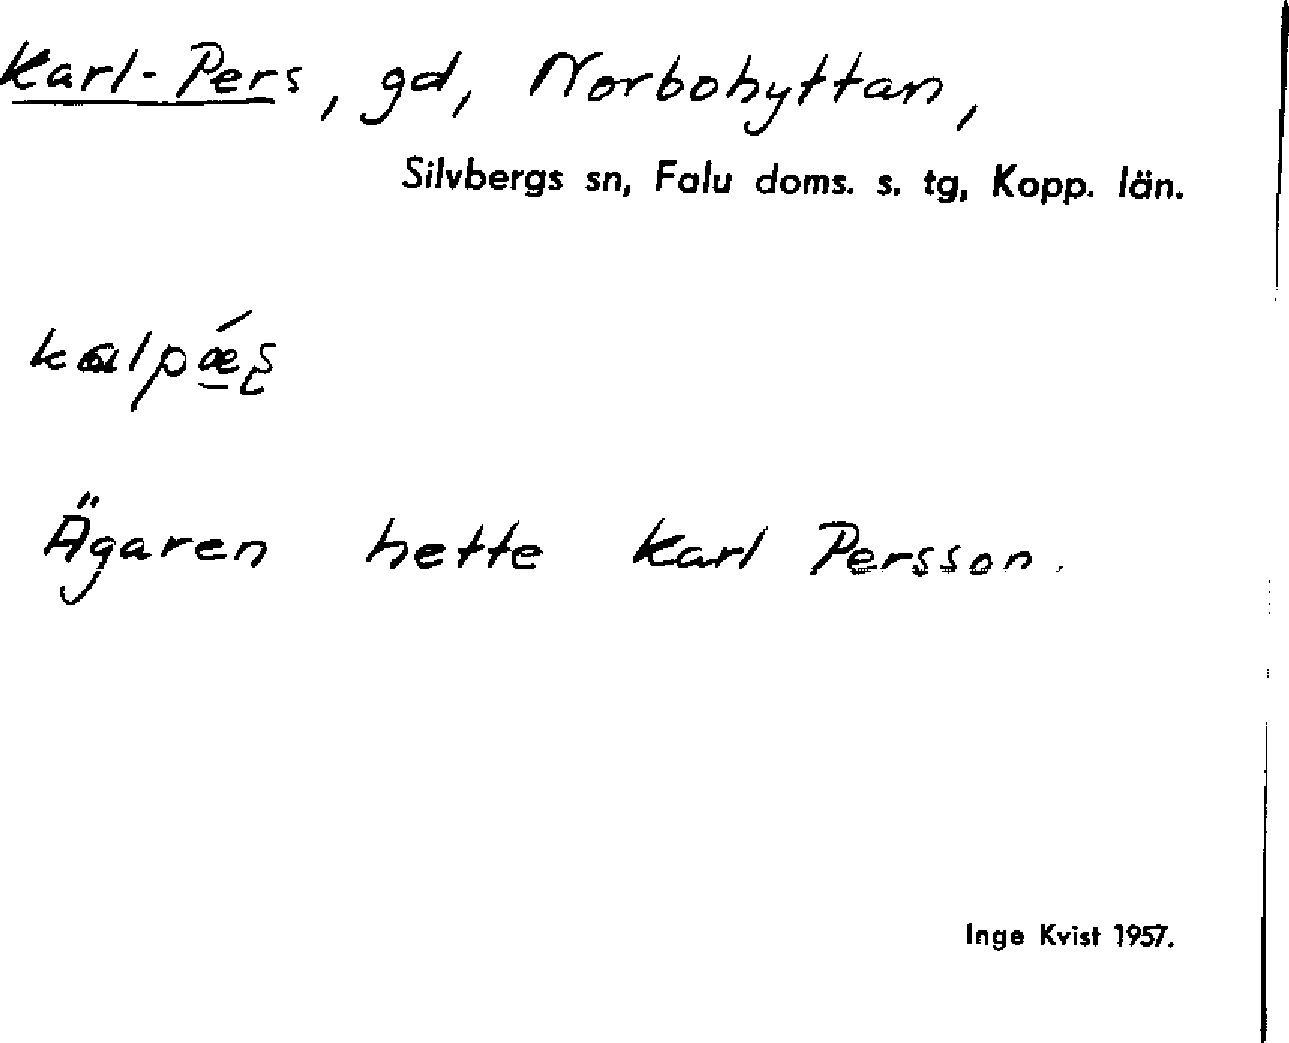 Karl-Pers, gd, Norbohyttan,
Silvbergs sn, Falu doms. s. tg, Kopp. län.
Ägaren hette Karl Persson.
Inge Kvist 1957.